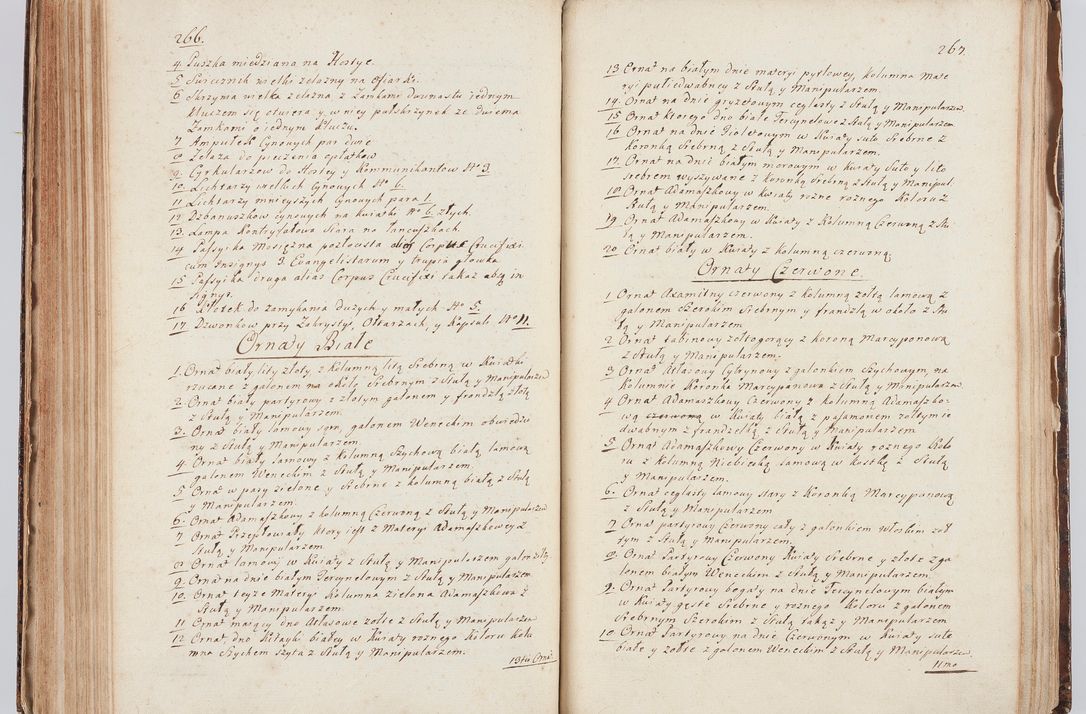 266.
4 Puszka miedziana na Hostye.
5 Swiecznik wielki zelazny na ofiarki.
6 Skrzynia wielka zelazna z Zamkami dwunastu iednym
kluczem się otwiera y w niey pułskrzynek ze dwiema
Zamkami o iednym kluczu.
7 Ampułek Cynowych par dwie
8 Zelaza do pieczenia opłatkow
9 Cyrkularzow do Hostey y Kommunikantow No 3.
10 Lichtarzy wielkich Cynowych No 6.
11 Lichtarzy mnieyszych Cynowych para 1.
12 Dzbanuszkow cynowych na kwiatki No 6. złych.
13 Lampa Kontryfałowa Stara na łancuszkach.
14 Passyika Mosiężna pozłocista alias Corpus Crucifixi
cum Insignys 3. Evangelistarum y trupia głowka
15 Passyika Druga alias Corpus Crucifixi takaz absq in
signys.
16 Kłotek do zamykania Duzych y małych No 5.
17 Dzwonkow przy Zakrystyi, Ołtarzach, y Kapsuli No 11.
Ornaty Białe
1. Ornat biały lity złoty, z Kolumną litą Srebrną w Kwiatki
rzucane z galonem na okołą Srebrnym z Stułą y Manipularzem
2. Ornat biały partyrowy z złotym galonem y frandzlą złotą
z Stułą y Manipularzem.
3. Ornat biały lamowy sym, galonem Weneckim obwiedzi
ny z Stułą y Manipularzem.
4. Ornat biały lamowy z Kolumną Szychową białą lamową
galonem Weneckim z Stułą y Manipularzem.
5 Ornat w pasy zielone y Srebrne z kolumną białą z Stułą
y Manipularzem.
6. Ornat Adamaszkowy z kolumną Czerwoną z Stułą y Manipularzem
7 Ornat Przepłowiały ktory iest z Materyi Adamaszkowey z
Stułą y Manipularzem.
8 Ornat lamowy w Kwiaty z Stułą y Manipularzem galon złoty
9 Ornat na dnie białym Tercynelowym z Stułą y Manipularzem
10. Ornat teyze Materyi Kolumna zielona Adamaszkowa z
Stułą y Manipularzem
11 Ornat maiący dno Atłasowe zołte z Stułą y Manipularzem
12 Ornat dno Kitayki białey w Kwiaty roznego Koloru Kolu
mna Szychem Szyta z Stułą y Manipularzem.
13tu Orna
267.
13 Ornat na białym dnie materyi pyrłowey, kolumna Mate
ryi puliedwabney z Stułą y Manipularzem.
14. Ornat na dnie gryzetowym ceglasty z Stułą y Manipularzem
15 Ornat ktorego dno białe Tercynelowe z Stułą y Manipularzem
16 Ornat na dnie Fioletowym w Kwiaty suto Srebrne z
koronką Srebrną z Stułą y Manipularzem.
17 Ornat na dnie białym morowym w Kwiaty Suto y lito
srebrem wyszywane z Koronką Srebrną z Stułą y Manipul.
18 Ornat Adamaszkowy w kwiaty rozne roznego Koloru z
Stułą y Manipularzem.
19. Ornat Adamaszkowy w Kwiaty z Kolumną Czerwoną z Stu
łą y Manipularzem.
20 Ornat biały w Kwiaty z kolumną czerwoną
Ornaty Czerwone.
1 Ornat Axamitny czerwony z kolumną zołtą lamową z
galonem Szerokim Srebrnym y frandzlą w około z Stu
łą y Manipularzem
2 Ornat tabinowy zołtogorący z koroną Marcypanową
z Stułą y Manipularzem.
3 Ornat Atłasowy Cytrynowy z galonkiem Szychowym, na
Kolumnie Koronka Marcypanowa z Stułą y Manipularzem
4 Ornat Adamaszkowy Czerwony z kolumną Adamaszko:
wą czerwoną w Kwiaty białą z pasamonem zołtym ie
dwabnym z frandzelką z Stułą y Manipularzem
5 Ornat Adamaszkowy Czerwony w Kwiaty roznego Kolo
ru z Kolumną Niebieską lamową w kostkę z Stułą
y Manipularzem.
6. Ornat ceglasty lamowy stary z Koronką Marcypanową
z Stułą y Manipularzem
7 Ornat partyrowy Czerwony cały z galonkiem Włoskim zoł
tym z Stułą y Manipularzem.
8 Ornat Partyrowy Czerwony Kwiaty Srebrne y złote z ga
lonem białym Weneckim z Stułą y Manipularzem.
9. Ornat Partyrowy bogaty na dnie Tercynelowym białym
w Kwiaty gęste Srebrne y roznego Koloru z galonem
Srebrnym Szerokim z Stułą takąz y Manipularzem
10 Ornat Partyrowy na dnie Czerwonym w Kwiaty sute
białe y zołte z galonem Weneckim z Stułą y Manipularzem.
11mo